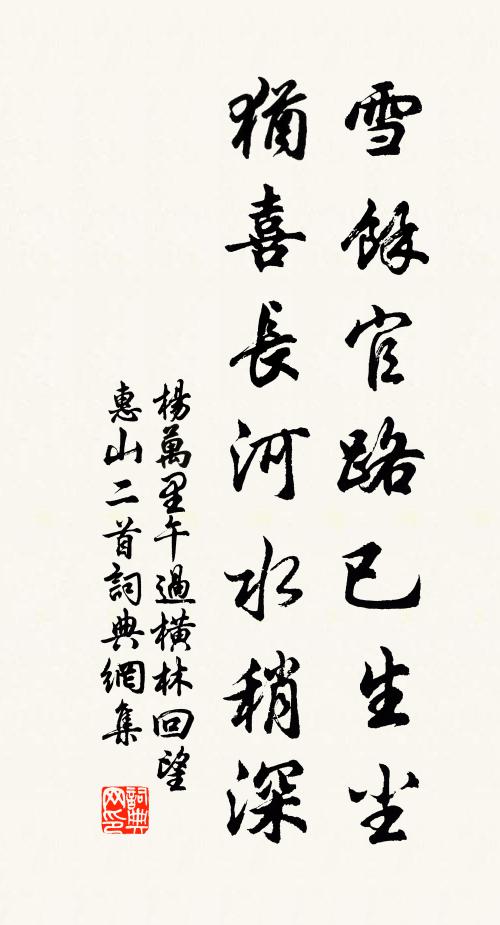 雪餘官路已生尘
猶喜長河水稍深
楊萬里午過橫林回望
惠山二首詞典網集
詞典
网印